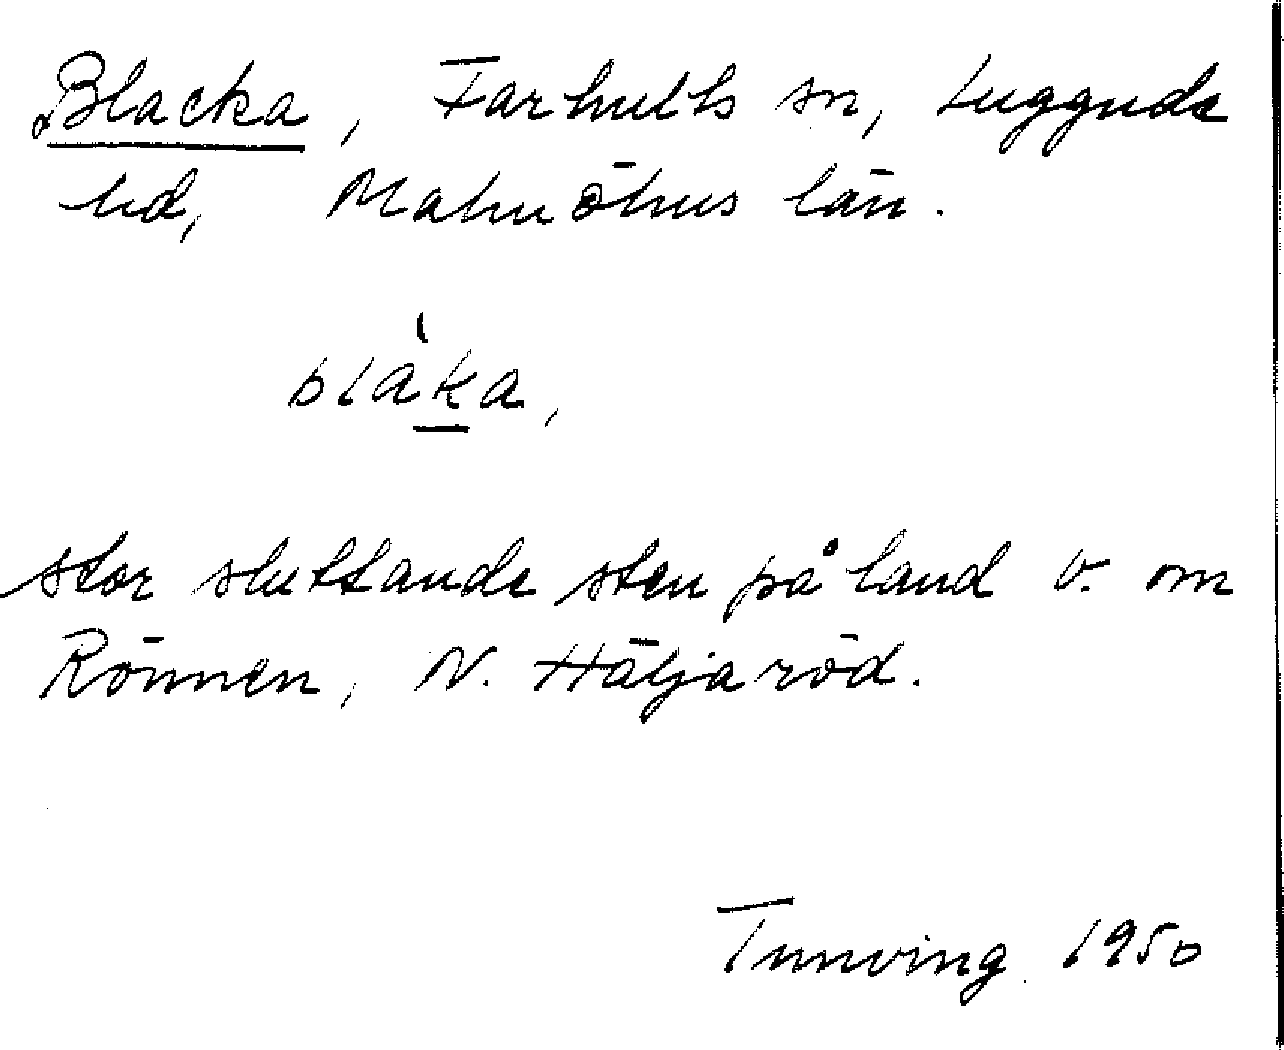 Blacka, Farhults sn, Luggude
hd, Malmöhus län.
blàka,
stor sluttande sten på land v. om
Rönnen, N. Häljaröd.
Tunving 1950